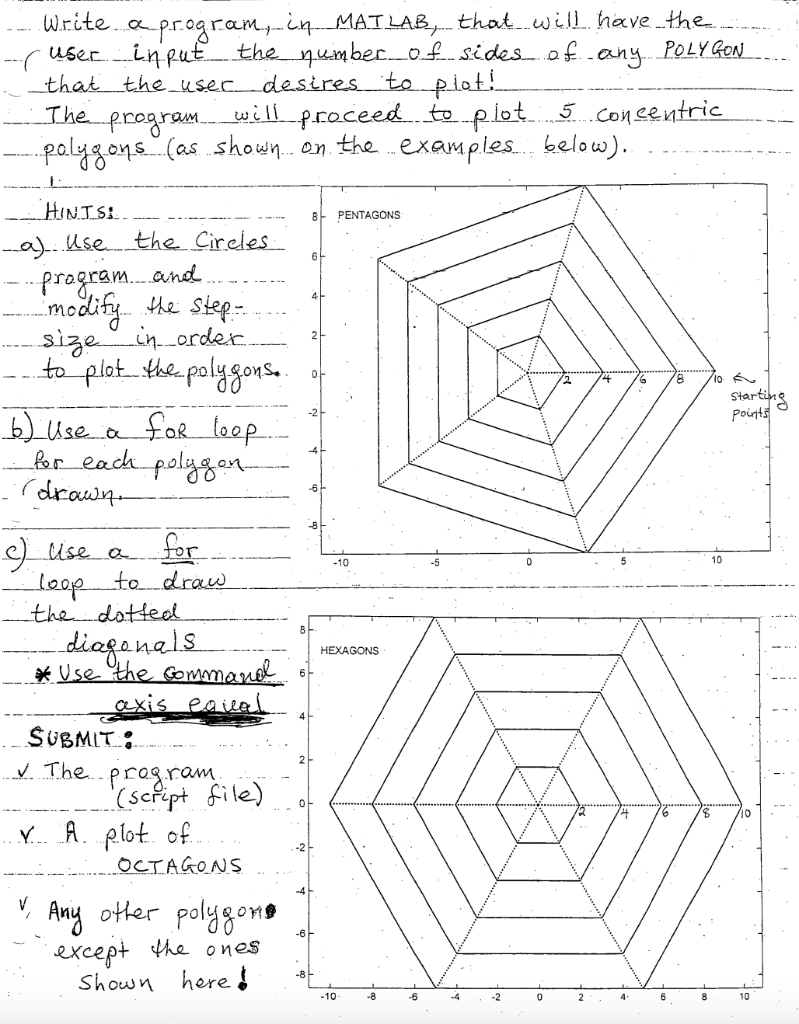 Write a program, in MATLAB, that will have the
user input the number of sides of any POLYGON
that the user desires to plot!
The program will proceed to plot 5 concentric
polygons (as shown on the examples below).
HINTS:
a) Use the Circles
program and
modify the step-
size in order
to plot the polygons.
b) Use a FOR loop
for each polygon
drawn.
c) Use a for
loop to draw
the dotted
diagonals
* Use the command
axis equal
SUBMIT:
✓ The program
(script file)
✓ A plot of
OCTAGONS
✓ Any other polygons
except the ones
shown here!
PENTAGONS
8
6
4
2
0
-2
-4
-6
-8
2 4 6 8 10 ←
starting
points
-10 -5 0 5 10
HEXAGONS
8
6
4
2
0
-2
-4
-6
-8
2 4 6 8 10
-10 -8 -6 -4 -2 0 2 4 6 8 10